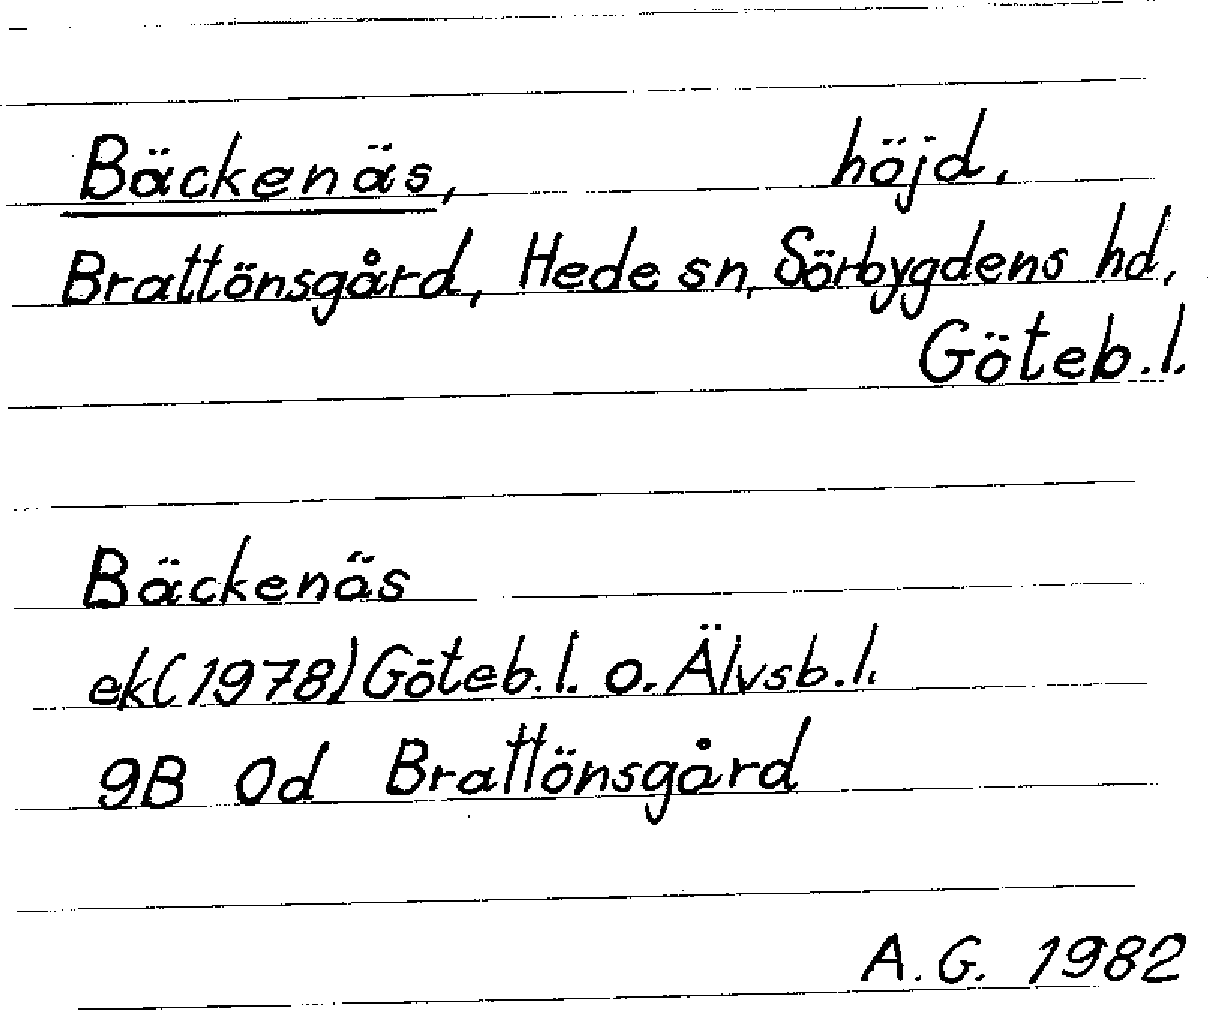 Bäckenäs, höjd.
Brattönsgård, Hede sn, Sörbygdens hd,
Göteb.l.
Bäckenäs
ek(1978) Göteb.l. o. Älvsb.l.
9B 0d Brattönsgård
A.G. 1982